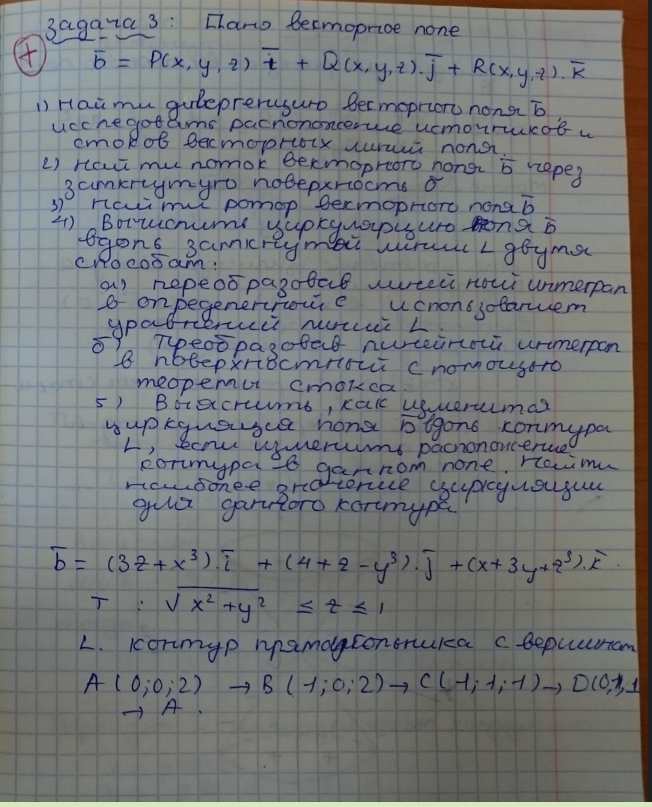 Задача 3: Дано векторное поле
+
b̄ = P(x, y, z) ī + Q(x, y, z). j̄ + R(x, y, z). k̄
1) Найти дивергенцию векторного поля b̄,
исследовать расположение источников и
стоков векторных линий поля.
2) Найти поток векторного поля b̄ через
замкнутую поверхность σ
3) Найти ротор векторного поля b̄
4) Вычислить циркуляцию поля b̄
вдоль замкнутой линии L двумя
способам:
а) преобразовав линейный интеграл
в определенный с использованием
уравнений линий L.
б) Преобразовав линейный интеграл
в поверхностный с помощью
теоремы Стокса.
5) Выяснить, как изменится
циркуляция поля b̄ вдоль контура
L, если изменить расположение
контура в данном поле. Найти
наиболее значение циркуляции
для данного контура
b̄ = (3z + x³). ī + (4 + z - y³). j̄ + (x + 3y + z³). k̄.
T : √x² + y² ≤ z ≤ 1
L. контур прямоугольника с вершинам
A (0; 0; 2) → B (1; 0; 2) → C (1; 1; 1) → D(0, 1, 1
→ A.